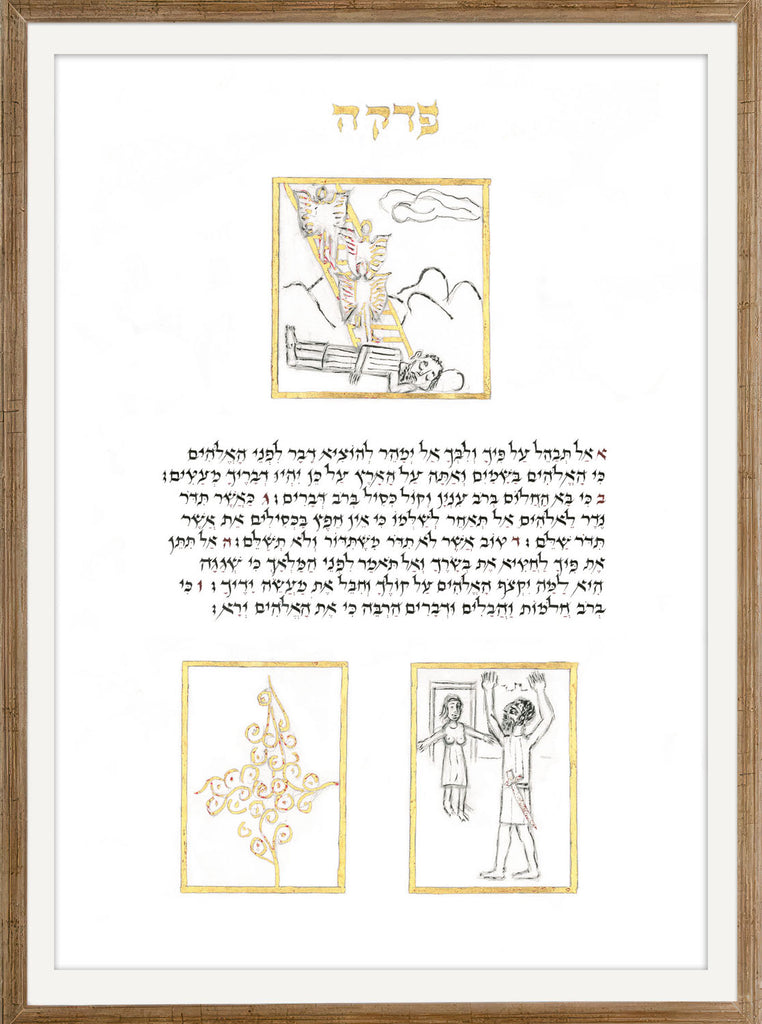 פרק ה
א אַל תְּבַהֵל עַל פִּיךָ וְלִבְּךָ אַל יְמַהֵר לְהוֹצִיא דָבָר לִפְנֵי הָאֱלֹהִים
כִּי הָאֱלֹהִים בַּשָּׁמַיִם וְאַתָּה עַל הָאָרֶץ עַל כֵּן יִהְיוּ דְבָרֶיךָ מְעַטִּים:
ב כִּי בָּא הַחֲלוֹם בְּרֹב עִנְיָן וְקוֹל כְּסִיל בְּרֹב דְּבָרִים: ג כַּאֲשֶׁר תִּדֹּר
נֶדֶר לֵאלֹהִים אַל תְּאַחֵר לְשַׁלְּמוֹ כִּי אֵין חֵפֶץ בַּכְּסִילִים אֵת אֲשֶׁר
תִּדֹּר שַׁלֵּם: ד טוֹב אֲשֶׁר לֹא תִדֹּר מִשֶּׁתִּדּוֹר וְלֹא תְשַׁלֵּם: ה אַל תִּתֵּן
אֶת פִּיךָ לַחֲטִיא אֶת בְּשָׂרֶךָ וְאַל תֹּאמַר לִפְנֵי הַמַּלְאָךְ כִּי שְׁגָגָה
הִיא לָמָּה יִקְצֹף הָאֱלֹהִים עַל קוֹלֶךָ וְחִבֵּל אֶת מַעֲשֵׂה יָדֶיךָ: ו כִּי
בְרֹב חֲלֹמוֹת וַהֲבָלִים וּדְבָרִים הַרְבֵּה כִּי אֶת הָאֱלֹהִים יְרָא: